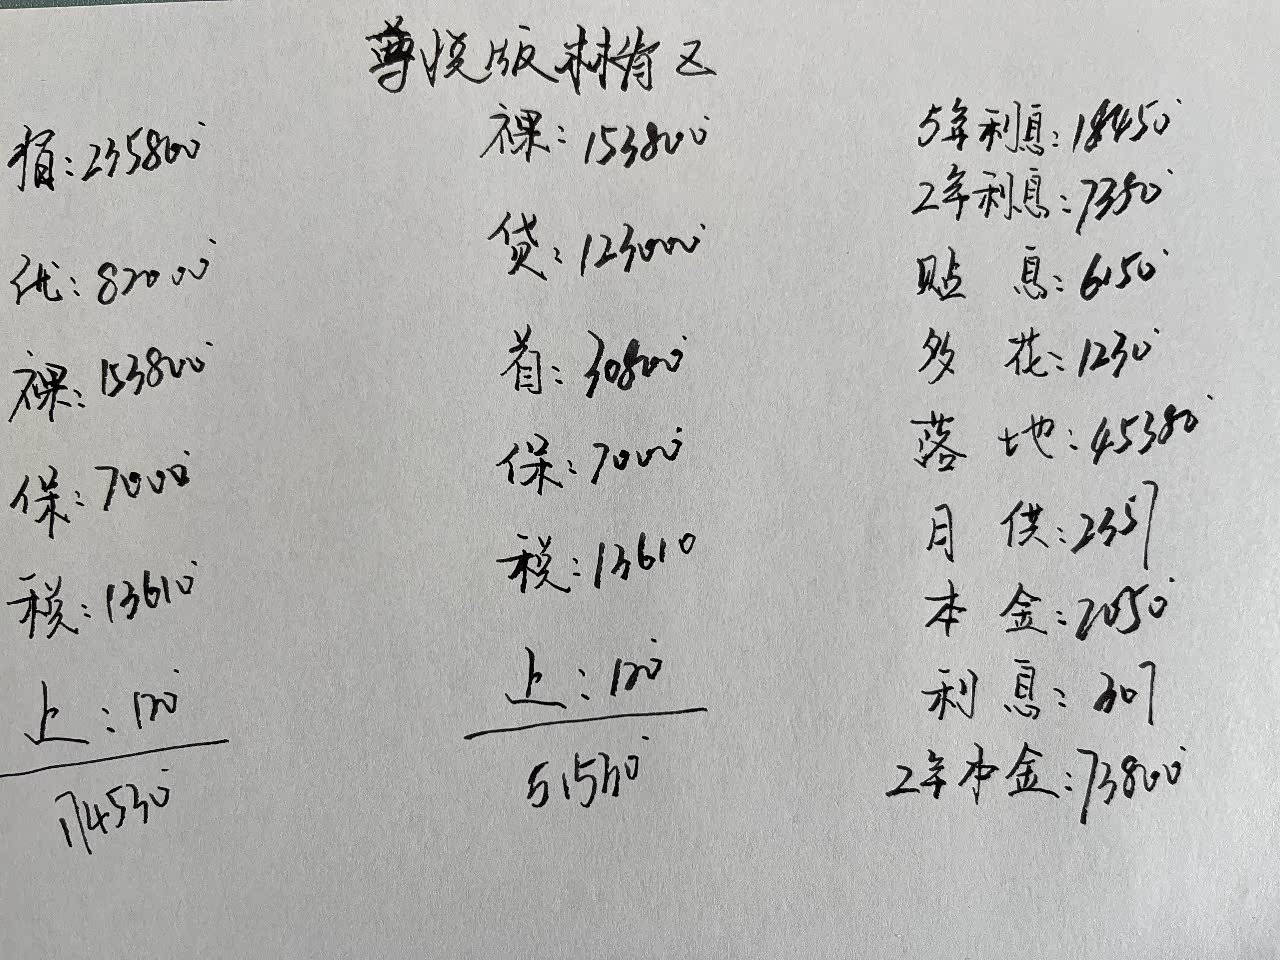 尊悦版林肯Z
指:235800
优:82000
裸:153800
保:7000
税:13610
上:120
174530
裸:153800
贷:123000
首:30800
保:7000
税:13610
上:120
51530
5年利息:18450
2年利息:7380
贴息:6150
多花:1230
落地:45380
月供:2357
本金:2050
利息:307
2年本金:73800